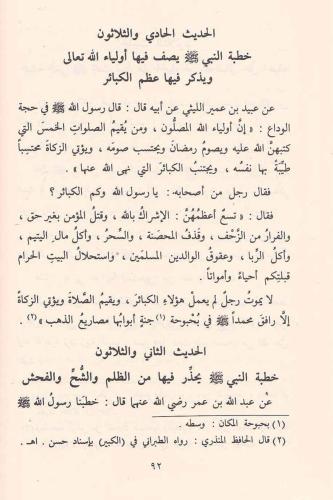 الحديث الحادي والثلاثون
خطبة النبي ﷺ يصف فيها أولياء الله تعالى
ويذكر فيها عظم الكبائر
عن عبيد بن عمير الليثي عن أبيه قال : قال رسول الله ﷺ في حجة
الوداع : « إنّ أولياء الله المصلّون ، ومن يُقيمُ الصلواتِ الخمسَ التي
كتبهنَّ الله عليه ويصومُ رمضانَ ويحتسب صومَه ، ويؤتي الزكاةَ محتسِباً
طيّبَةً بها نفسُه ، ويجتنبُ الكبائرَ التي نهى اللهُ عنها » .
فقال رجل من أصحابه: يا رسولَ الله وكم الكبائر؟
فقال : « تسعٌ أعظمُهُنَّ : الإشراكُ بالله ، وقتلُ المؤمنِ بغيرِ حق ،
والفرارُ من الزَّحْف، وقذفُ المحصَنة ، والسِّحرُ ، وأكلُ مالِ اليتيمِ ،
وأكلُ الرِّبا ، وعقوقُ الوالدين المسلِمَين ، واستحلالُ البيتِ الحرام
قبلتِكم أحياءً وأمواتاً .
لا يموتُ رجلٌ لم يعملْ هؤلاءِ الكبائرَ ، ويقيمُ الصَّلاةَ ويؤتي الزكاةَ
إلّا رافقَ محمداً ﷺ في بُحْبوحة (١) جنةٍ أبوابُها مصاريعُ الذهب » (٢) .
الحديث الثاني والثلاثون
خطبة النبي ﷺ يحذِّر فيها من الظلم والشُّحِّ والفحش
عَن عبد الله بن عمر رضي الله عنهما قال : خطبَنا رسولُ الله ﷺ
(١) بحبوحة المكان : وسطه .
(٢) قال الحافظ المنذري : رواه الطبراني في (الكبير) بإسناد حسن . اهـ .
٩٢